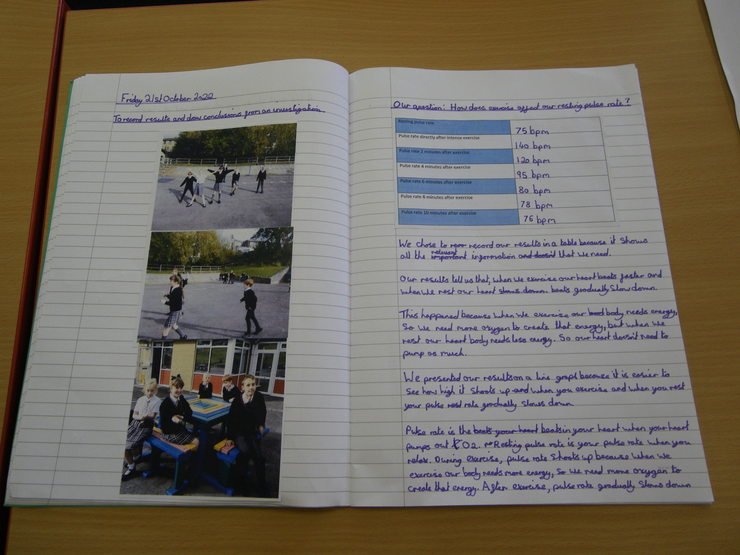 Friday 21st October 2022
To record results and draw conclusions from an investigation
Our question: How does exercise affect our resting pulse rate?
Resting pulse rate 75 bpm
Pulse rate directly after intense exercise 140 bpm
Pulse rate 2 minutes after exercise 120 bpm
Pulse rate 4 minutes after exercise 95 bpm
Pulse rate 6 minutes after exercise 80 bpm
Pulse rate 8 minutes after exercise 78 bpm
Pulse rate 10 minutes after exercise 76 bpm
We chose to record our results in a table because it shows
all the relevant important information and doesn't that we need.
Our results tell us that, when we exercise our heart beats faster and
when we rest our heart slows down. beats gradually slow down.
This happened because when we exercise our body needs energy,
So we need more oxygen to create that energy, but when we
rest our heart body needs less energy. So our heart doesn't need to
pump as much.
We presented our results on a line graph because it is easier to
see how high it shoots up and when you exercise and when you rest
your pulse rate gradually slows down
Pulse rate is the beats your heart beats in your heart when your heart
pumps out CO2. Resting pulse rate is your pulse rate when you
relax. During exercise, pulse rate shoots up because when we
exercise our body needs more energy, so we need more oxygen to
create that energy. After exercise, pulse rate gradually slows down